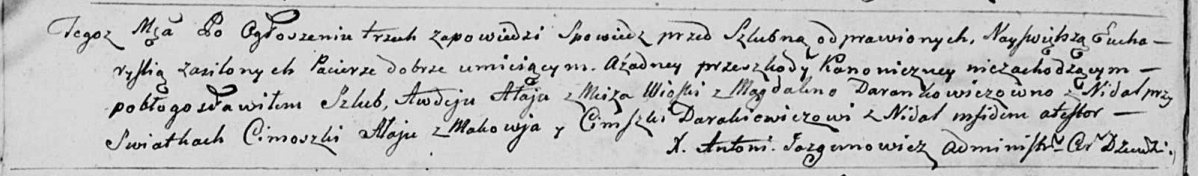 Tegoz Mca Po Ogłoszeniu trzech zapowiedzi Spowiedz przed Szlubną odprawionych, Nayswiętszą Eucha—
rystią zasilonych Pacierze dobrze umieiącym. Azadney przeszkody Kanoniczney niezachodzącym —
pobłogosławiłem Szlub, Awdeju Ałaju z Wioski z Magdaliną Darankowiczowną z Nidal przy
Swiatkach Cimoszki Ałaju z Makowja y Cimszki Darakiewiczowi z Nidal infidem atestor —
X. Antoni administr